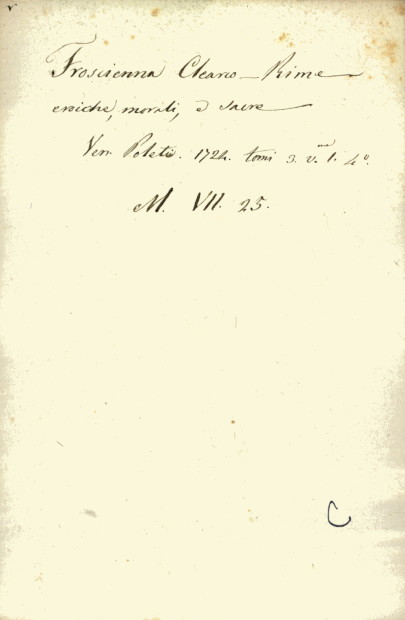 Froscienna Cleano - Rime
eroiche, morali, e sacre
Ven. Poleti. 1724. tomi 3. v.me 1. 4°.
M. VII. 25.
C